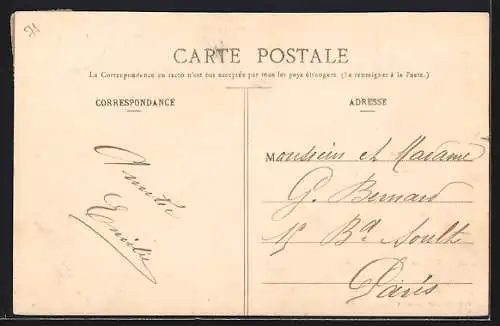 91
CARTE POSTALE
La Correspondance au recto n'est pas acceptée par tous les pays étrangers. (Se renseigner à la Poste.)
CORRESPONDANCE
Amitié
Emilie
ADRESSE
Monsieur et Madame
G. Bernard
15 Bd Soult
Paris